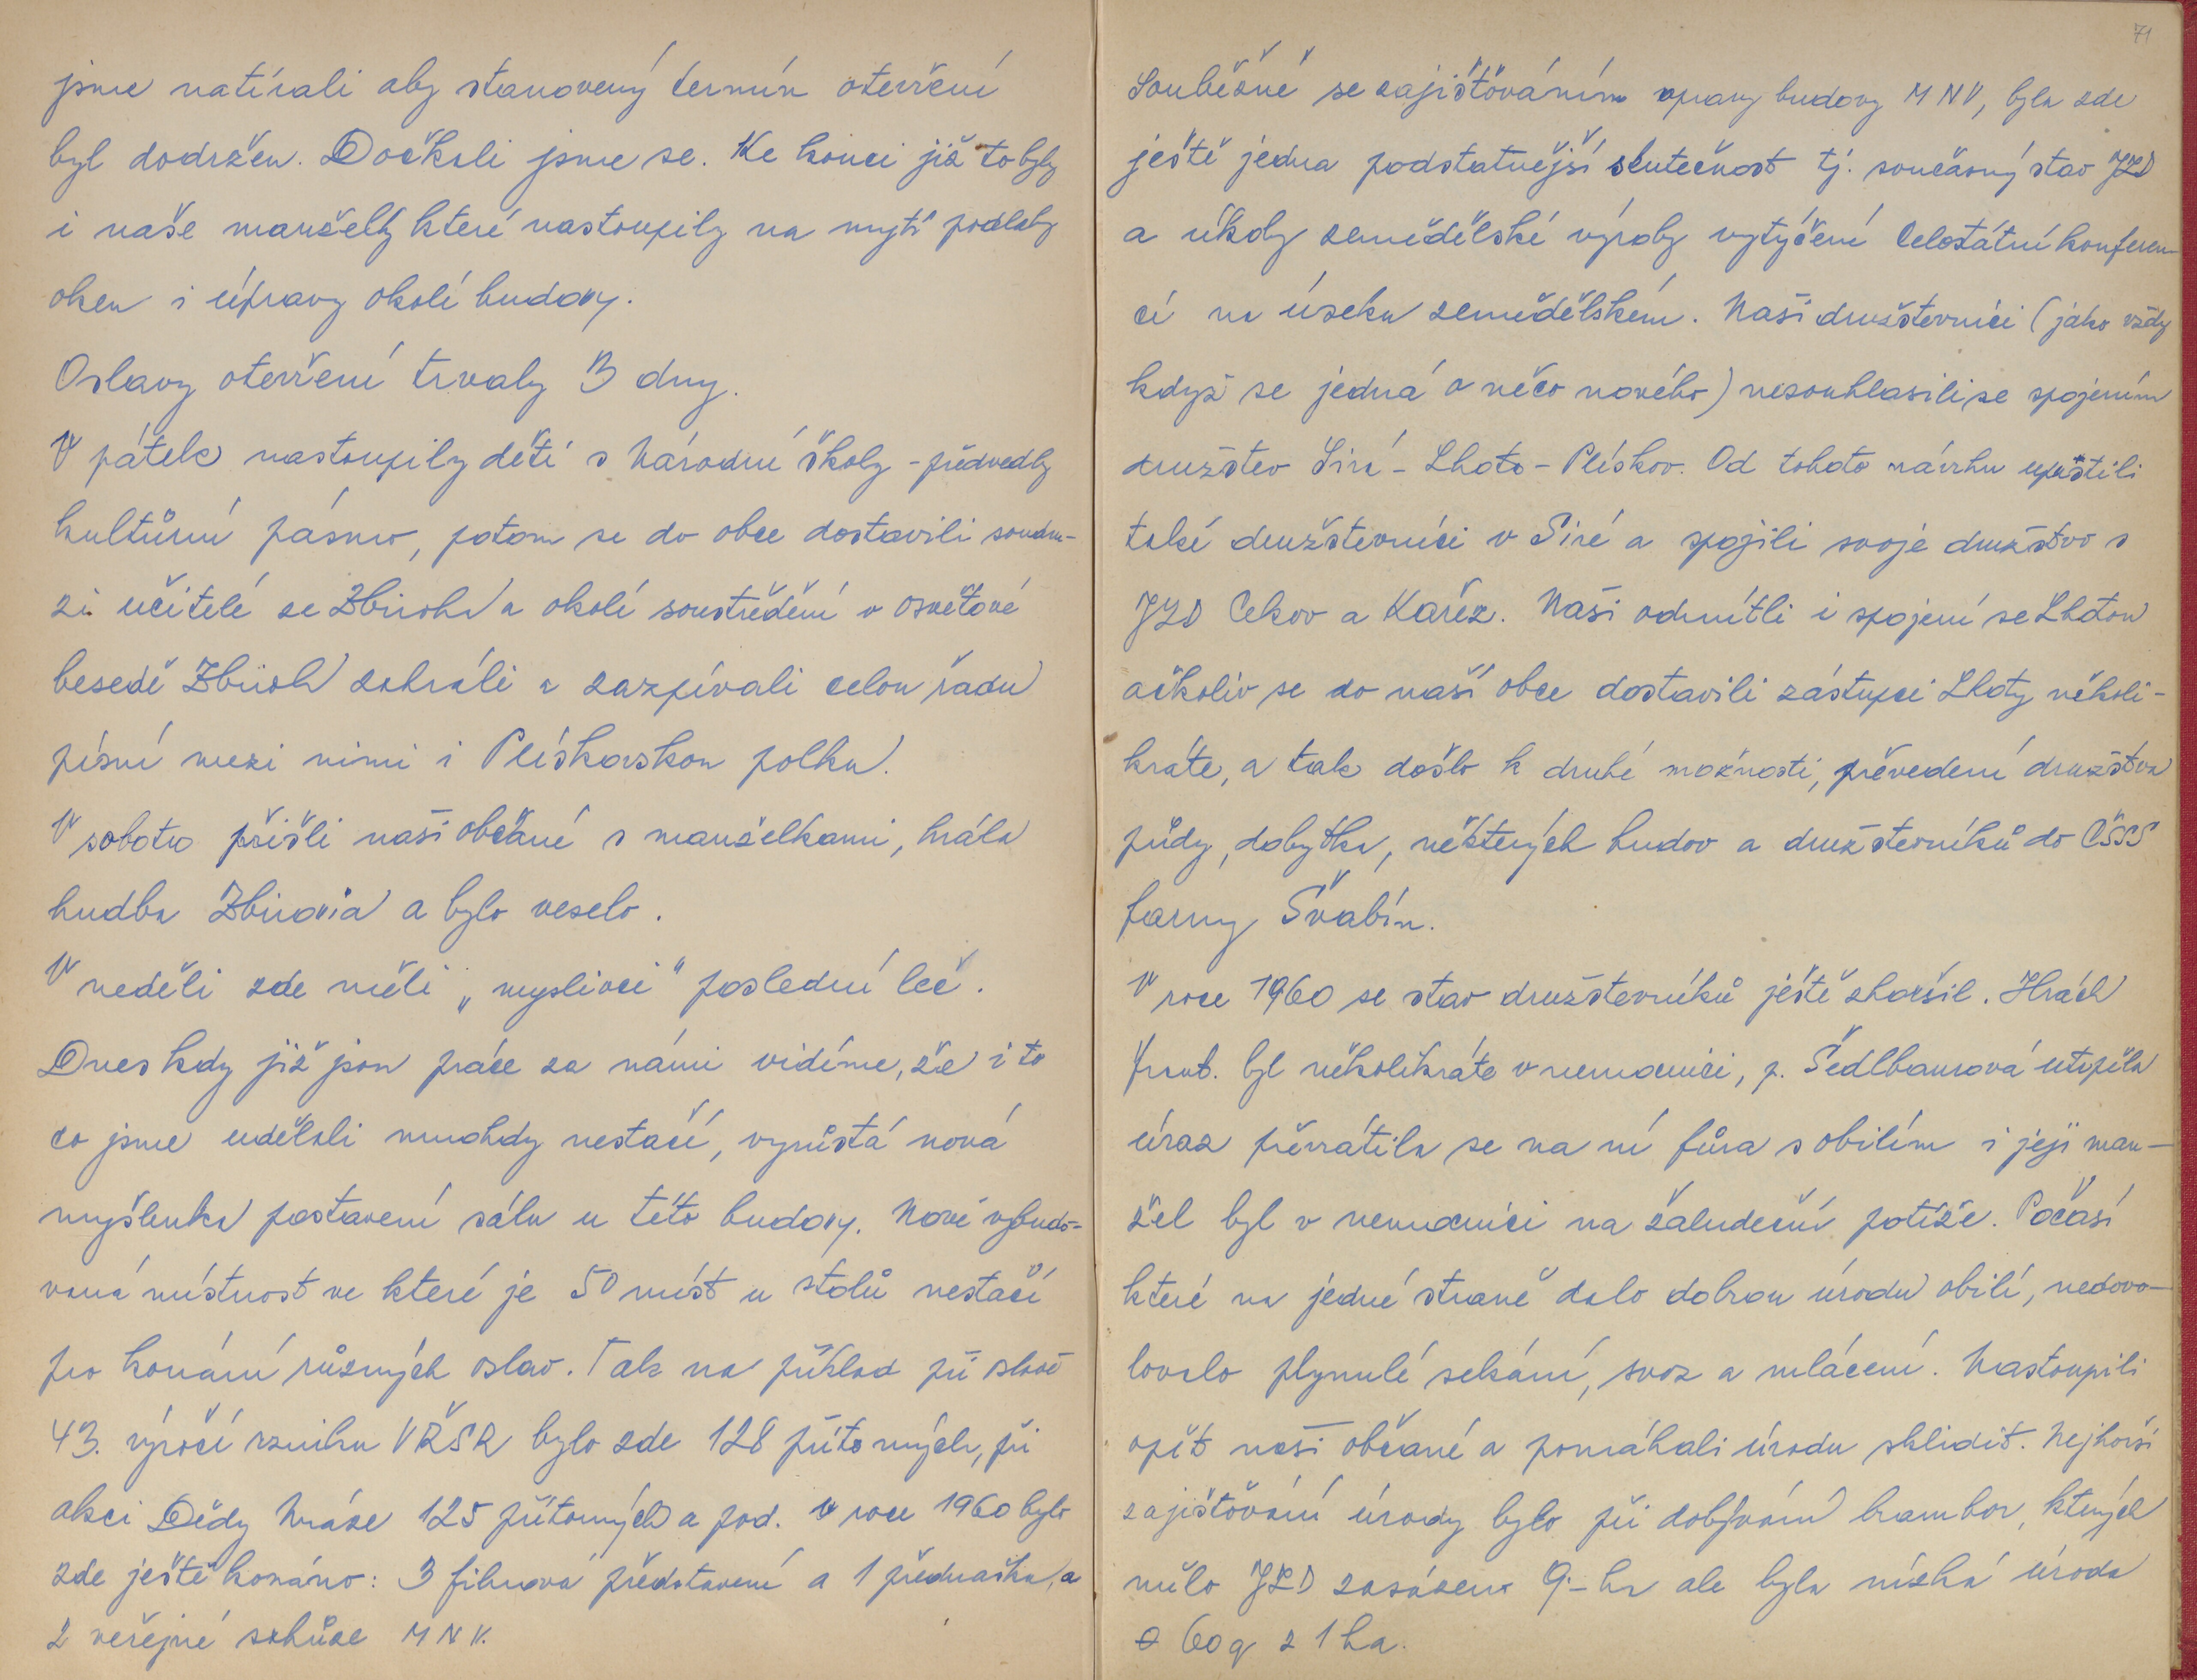 jsme natírali aby stanovený termín otevření
byl dodržen. Dočkali jsme se. Ke konci již to byly
i naše manželky které nastoupily na mytí podlahy
oken i úpravy okolí budovy.
Oslavy otevření trvaly 3 dny.
V pátek nastoupily děti s Národní školy - předvedly
kultůrní pásmo, potom se do obce dostavili soudru-
zi učitelé ze Zbiroha a okolí soustředění v osvětové
besedě Zbiroh zahráli a zazpívali celou řadu
písní mezi nimi i Plískovskou polku.
V sobotu přišli naši občané s manželkami, hrála
hudba Zbirovia a bylo veselo.
V neděli zde měli „myslivci" poslední leč.
Dnes kdy již jsou práce za námi vidíme, že i to
co jsme udělali mnohdy nestačí, vyrůstá nová
myšlenka postavení sálu u této budovy. Nově vybudo-
vaná místnost ve které je 50 míst u stolů nestačí
pro konání různých oslav. Tak na příklad při oslavě
43. výročí vzniku VŘSR bylo zde 128 přítomných, při
akci Dědy Mráze 125 přítomných a pod. v roce 1960 bylo
zde ještě konáno: 3 filmová představení a 1 přednaška, a
2 veřejné schůze MNV.
71
Souběžně se zajišťováním opravy budovy MNV, byla zde
ještě jedna podstatnější skutečnost tj. současný stav JZD
a úkoly zemědělské výroby vytýčení Celostátní konferen-
cí na úseku zemědělském. Naši družstevníci (jako vždy
když se jedná o něco nového) nesouhlasili se spojením
družstev Sirá - Lhota - Plískov. Od tohoto návrhu upustili
také družstevníci v Siré a spojili svoje družstvo s
JZD Cekov a Kařez. Naši odmítli i spojení se Lhotou
ačkoliv se do naší obce dostavili zástupci Lhoty několi-
kráte, a tak došlo k druhé možnosti, převedení družstva
půdy, dobytka, některých budov a družsterníků do ČSSS
farmy Švabín.
V roce 1960 se stav družstevníků ještě zhoršil. Hrách
Frant. byl několikráte v nemocnici, p. Šedlbaurová utrpěla
úraz převrátila se na ní fůra s obilím i její man-
žel byl v nemocnici na žaludeční potíže. Počasí
které na jedné straně dalo dobrou úrodu obilí, nedovo-
lovalo plynulé sekání, svoz a mlácení. Nastoupili
opět naši občané a pomáhali úrodu sklidit. Nejhorší
zajišťování úrody bylo při dobývání brambor, kterých
mělo JZD zasázeno 9.- ha ale byla nízká úroda
ø 60 q z 1 ha.